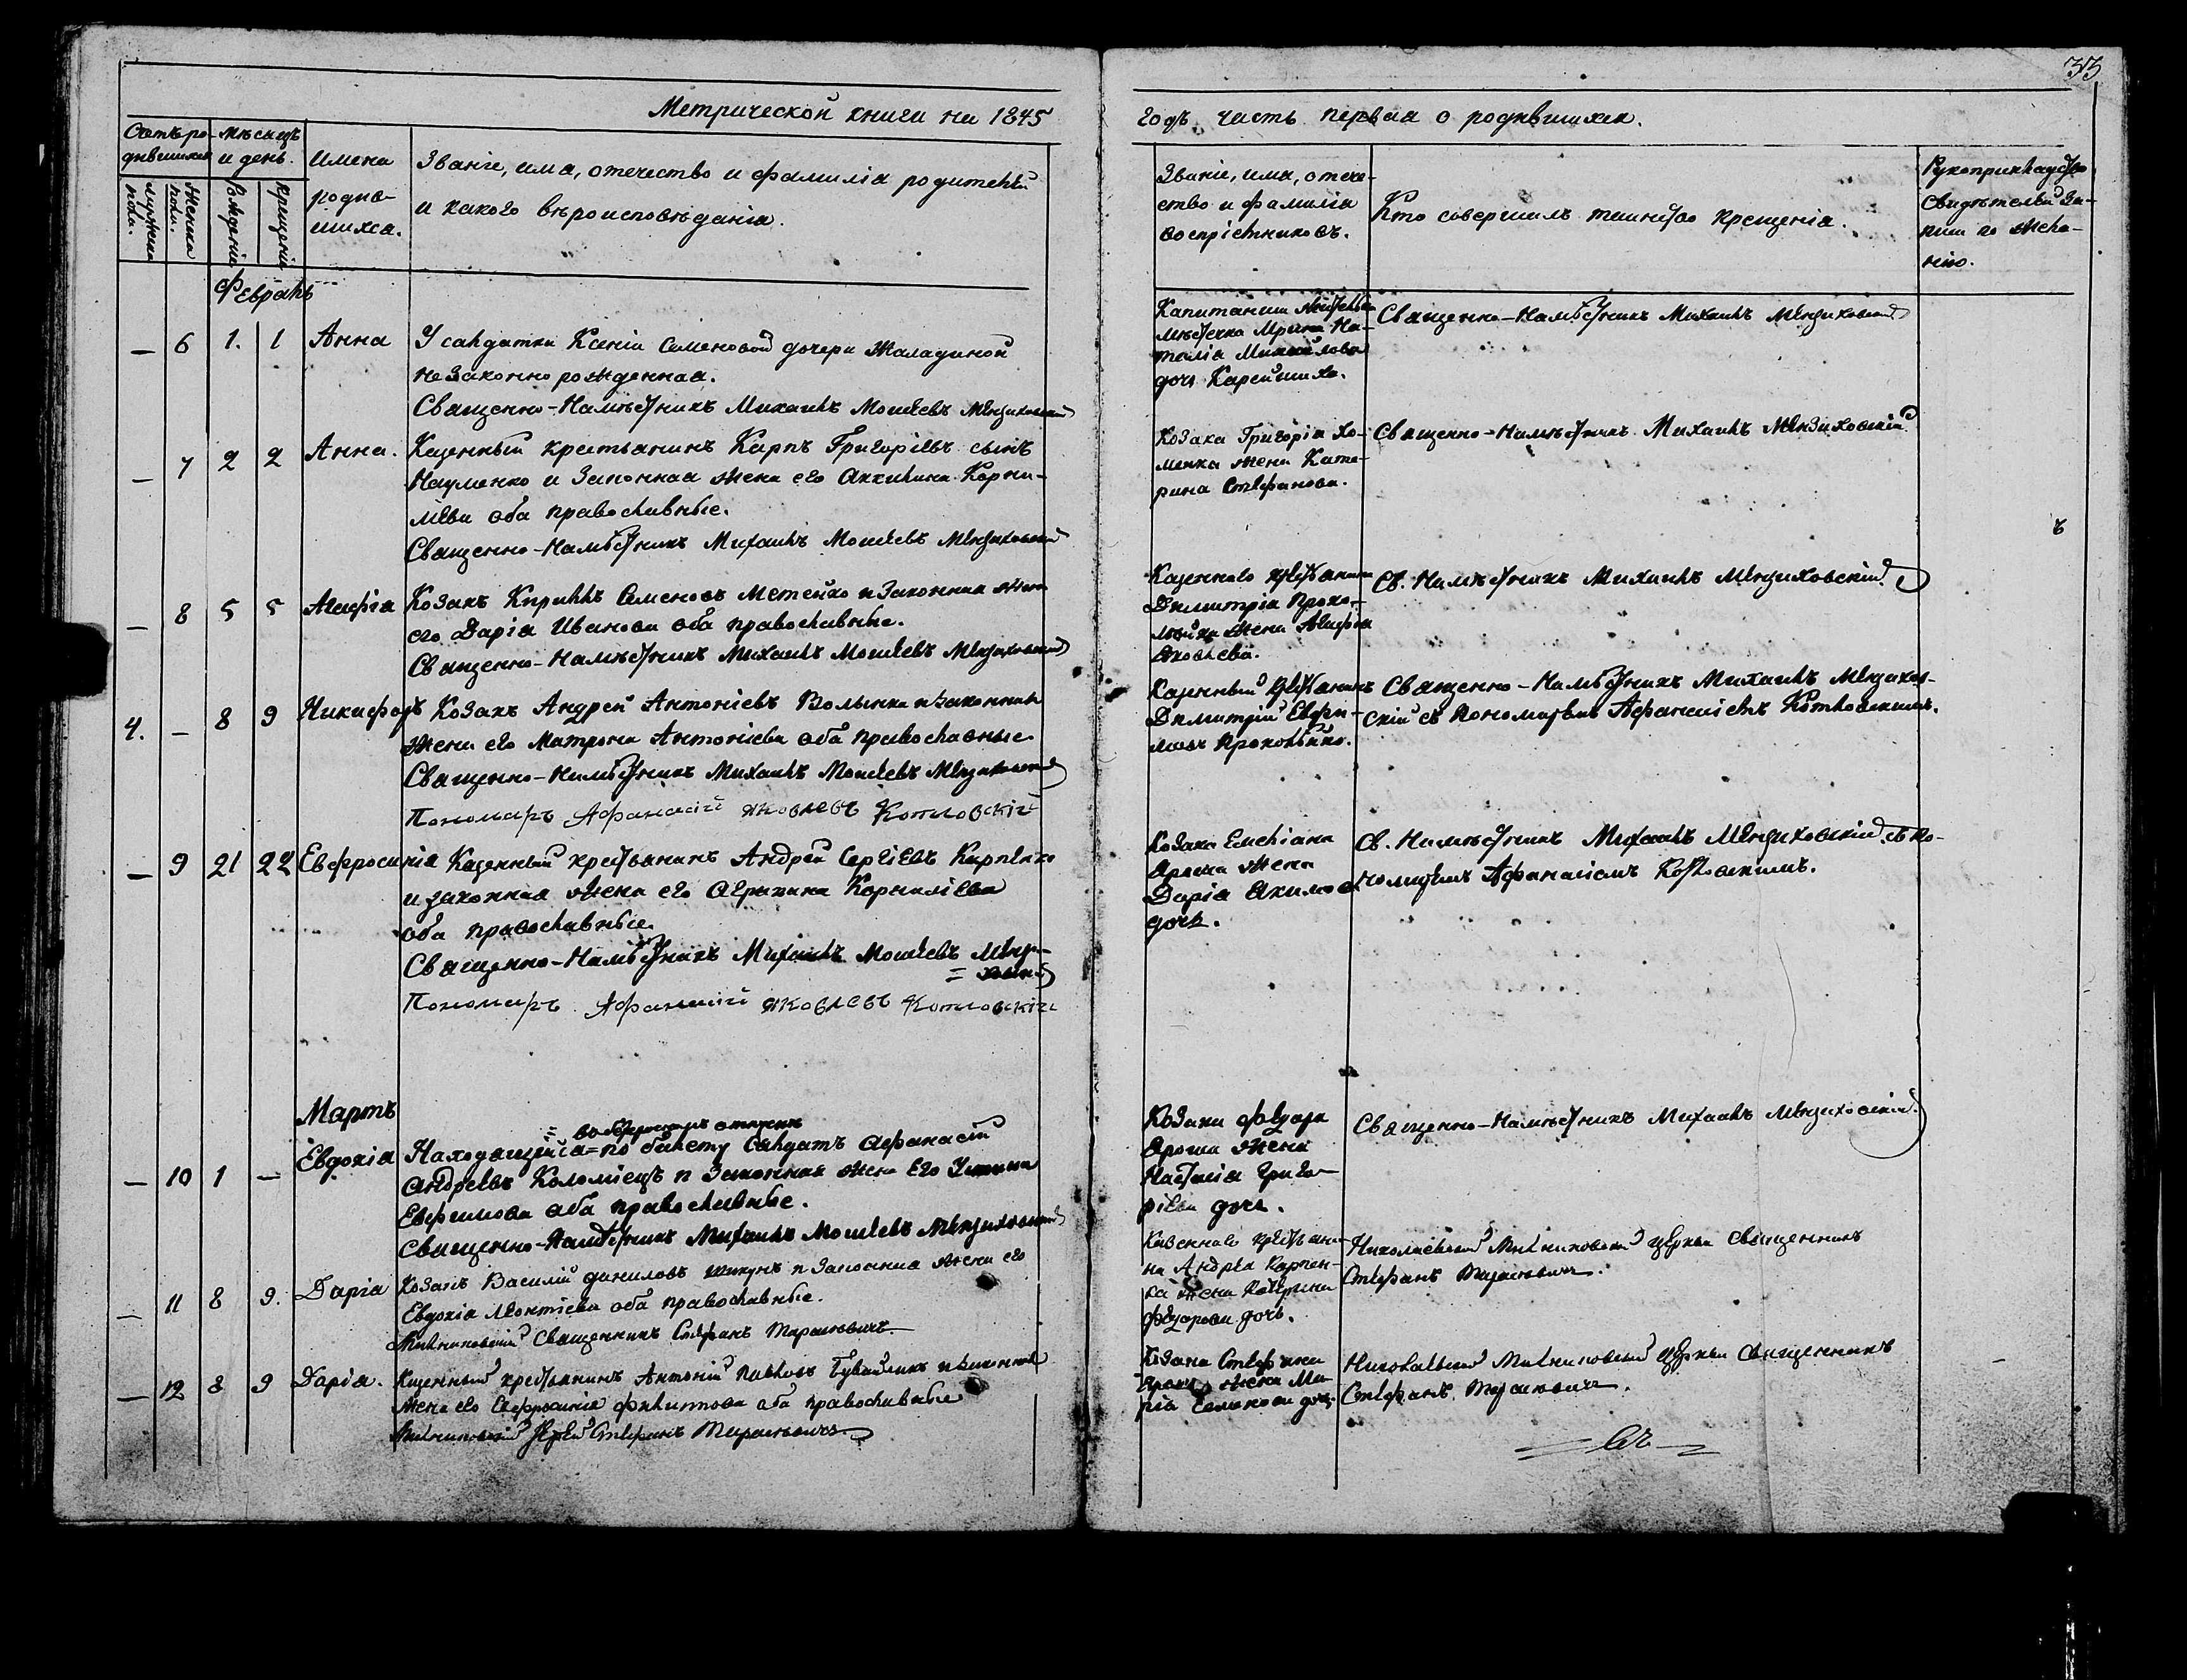 33
Метрической книги на 1845
годъ часть первая о родившихся.
Счетъ ро-
дившихся
мужеска
пола.
Женска
пола.
Мѣсяцъ
и день.
Рожденіе
крещеніе
Имена
родив-
шихся.
Званіе, има, отчество и фамиліа родителей
и какого вѣроисповѣданіа.
Званіе, има, отече-
ство и фамиліа
воспріемниковъ.
Кто совершилъ таинство крещеніа.
Рукоприкладство
Свидѣтелей за-
писи по жела-
нію.
Февраль
— 6 1. 1 Анна
У салдатки Ксеніи Семеновой дочери Жаладиной
незаконно рожденнаа.
Священно-Намѣстникъ Михаилъ Моисеевъ
Капитанши
мѣстечка
таліа Михайлова
дочь
Священно-Намѣстникъ Михаилъ
— 7 2 2 Анна.
Казенный крестьанинъ Карпъ Григоріевъ сынъ
Науменко и Законнаа жена его Акилина Корни-
лѣева оба православные.
Священно-Намѣстникъ Михаилъ Моисеевъ
Козака Григоріа Хо-
менка жена Кате-
рина Стефанова.
Священно-Намѣстникъ Михаилъ
— 8 5 5 Агафіа
Козакъ Кирилъ Семеновъ Метейко и Законнаа жена
его Даріа Иванова оба православные.
Священно-Намѣстникъ Михаилъ Моисеевъ
Казеннаго крестьанина
Димитріа Проко-
жена Агафіа
Яковлева.
Св. Намѣстникъ Михаилъ
4. — 8 9 Никифоръ
Козакъ Андрей Антоніевъ Волынка и законнаа
жена его Матрона Антоніева оба православные
Священно-Намѣстникъ Михаилъ Моисеевъ
Пономаръ Афанасій Яковлевъ Котловскій
Казенный крестьанинъ
Димитрій Евфи-
мовъ
Священно-Намѣстникъ Михаилъ
скій съ Пономаремъ Афанасіемъ Котловскимъ.
— 9 21 22 Евфросиніа
Казенный крестьанинъ Андрей Сергіевъ Карпенко
и законнаа жена его Корниліева
оба православные.
Священно-Намѣстникъ Михаилъ Моисеевъ
Пономаръ Афанасій Яковлевъ Котловскій
Козака Емеліана
Яроша жена
Даріа Акимова
дочь.
Св. Намѣстникъ Михаилъ съ по-
номаремъ Афанасіемъ Котловскимъ.
Мартъ
— 10 1 — Евдокіа
Находящійся по билету Салдатъ Афанасій
Андреевъ Коломіецъ и Законнаа жена Его
Евфимова оба православные.
Священно-Намѣстникъ Михаилъ Моисеевъ
Козака Феодора
Яроша жена
Настасіа Григо-
ріева дочь.
Священно-Намѣстникъ Михаилъ
— 11 8 9. Даріа
Козакъ Василій Даниловъ и Законнаа жена его
Евдокіа Леонтіева оба православные.
Священникъ Стефанъ Тарасіевичъ
Казеннаго крестьани-
на Андреа Карпен-
ка жена Катерина
Феодорова дочь.
Николаевской церкви Священникъ
Стефанъ Тарасіевичъ.
— 12 8 9 Даріа.
Казенный крестьанинъ Антоній Павловъ и законнаа
жена его Евфросиніа Филипова оба православные
Іерей Стефанъ Тарасіевичъ
Козака Стефана
Яроша жена Ма-
ріа Семенова дочь.
Николаевской церкви Священникъ
Стефанъ Тарасіевичъ.